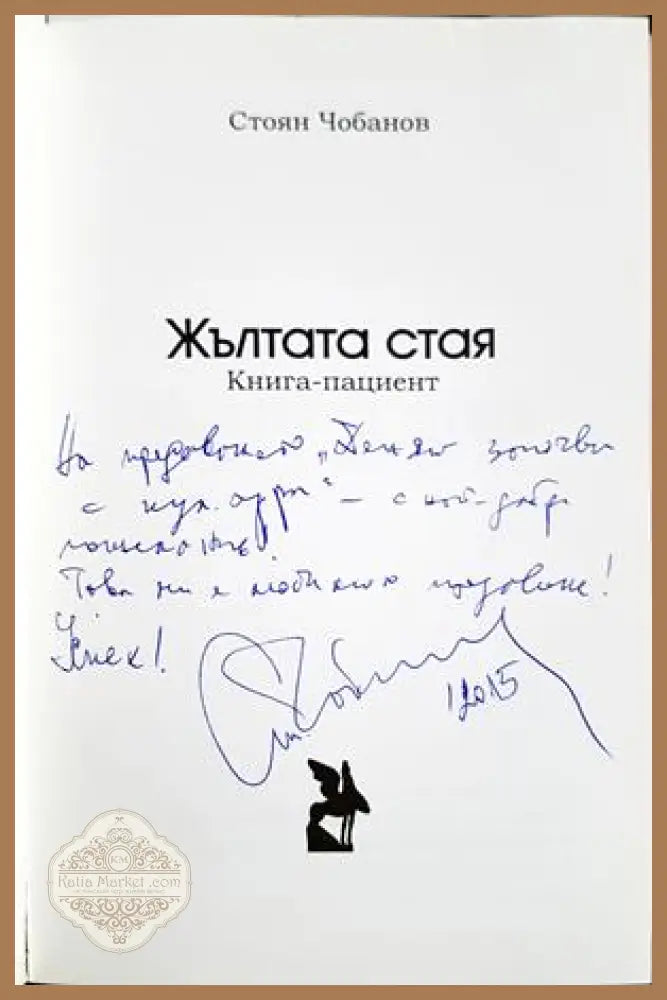 Стоян Чобанов
Жълтата стая
Книга-пациент
На предаването „Денят започва
с култура“ – с най-добри
пожелания!
Това ми е любимото предаване!
Успех!
2015
KM
Kalia Market .com